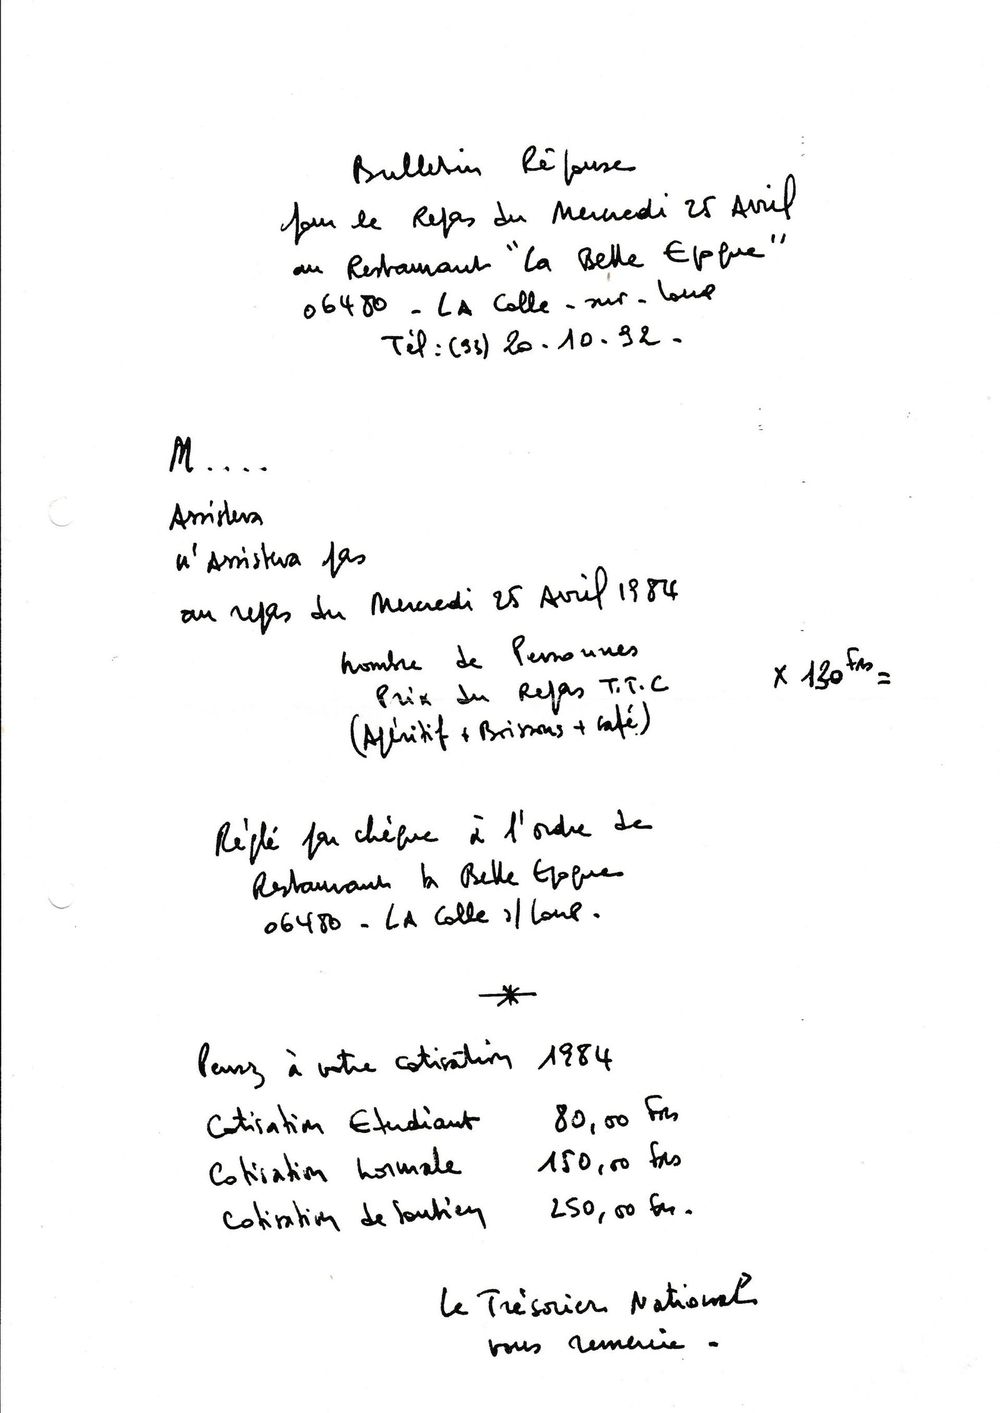 Bulletin Réponse
pour le Repas du Mercredi 25 Avril
au Restaurant "La Belle Epoque"
06480 - LA Colle - sur - Loup
Tél : (93) 20.10.92.
M....
Assistera
n'Assistera pas
au repas du Mercredi 25 Avril 1984
Nombre de Personnes
Prix du Repas T.T.C x 130 Frs =
(Apéritif + Boissons + Café)
Réglé par chèque à l'ordre de
Restaurant la Belle Epoque
06480 - LA Colle s/ Loup.
Pensez à votre cotisation 1984
Cotisation Etudiant 80,00 Frs
Cotisation Normale 150,00 Frs
Cotisation de Soutien 250,00 Frs.
Le Trésorier National
vous remercie -